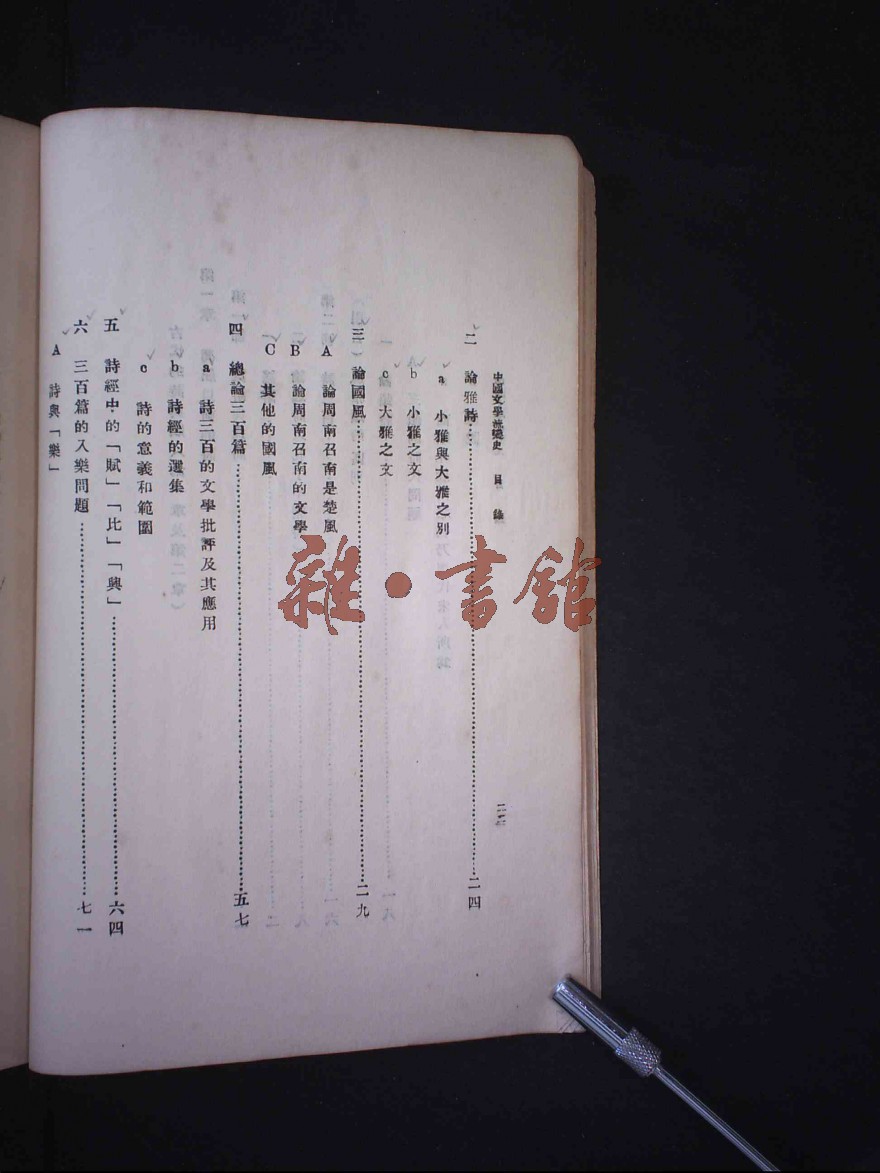 中國文學流變史　目　錄
二　論雅詩……二四
a　小雅與大雅之別
b　小雅之文
c　大雅之文
三　論國風……二九
A　論周南召南是楚風
B　論周南召南的文學
C　其他的國風
四　總論三百篇……五七
a　詩三百的文學批評及其應用
b　詩經的選集
c　詩的意義和範圍
五　詩經中的「賦」「比」「興」……六四
六　三百篇的入樂問題……七一
A　詩與「樂」
雜·書館